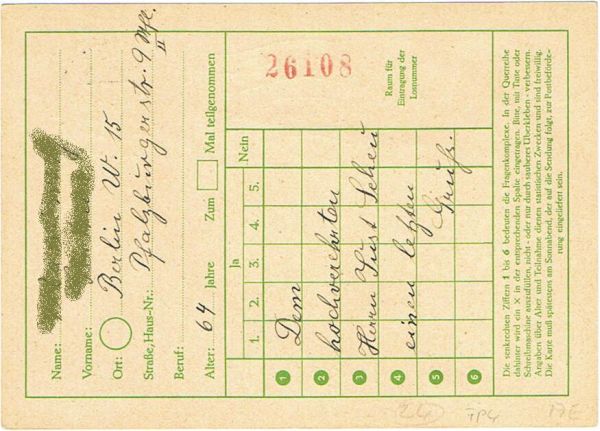 Name:
Vorname:
Ort: Berlin W. 15
Straße, Haus-Nr.: Pfalzburgerstr. 9 II
Beruf:
Alter: 64 Jahre Zum Mal teilgenommen
Ja Nein
1. 2. 3. 4. 5.
1 Dem
2 hochverehrten
3 Herrn
4 einen letzten
5 Gruß.
6
26108
Raum für
Eintragung der
Losnummer
Die senkrechten Ziffern 1 bis 6 bedeuten die Fragenkomplexe. In der Querreihe
dahinter wird ein × in der entsprechenden Spalte eingetragen. Bitte, mit Tinte oder
Schreibmaschine auszufüllen, nicht - oder nur durch sauberes Überkleben - verbessern.
Angaben über Alter und Teilnahme dienen statistischen Zwecken und sind freiwillig.
Die Karte muß spätestens am Sonnabend, der auf die Sendung folgt, zur Postbeförde-
rung eingeliefert sein.